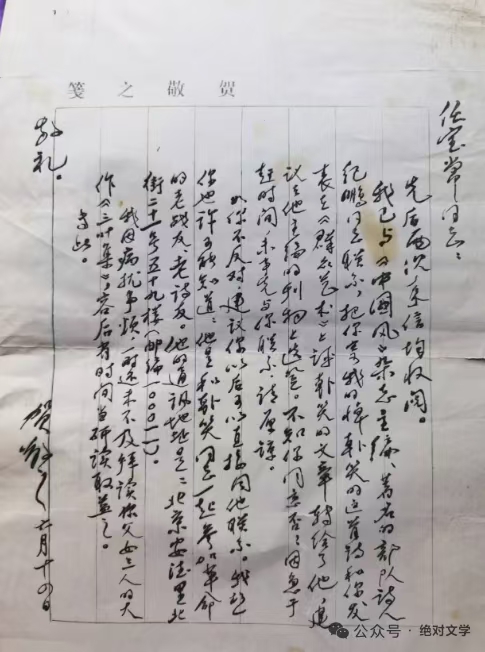 贺敬之笺
任宝常同志：
先后两次来信均收阅。
我已与《中国风》杂志主编、著名的部队诗人
纪鹏同志联系，把你寄我的悼朴笑的这首诗和你发
表在《群众艺术》上评朴笑的文章转给了他，建
议在他主编的刊物上选登。不知你同意否？因急于
赶时间，未事先与你联系，请原谅。
如你不反对，建议你以后可以直接同他联系。我想
你也许可能知道：他是和朴笑同志一起参加革命
的老战友、老诗友。他的通讯地址是：北京安德里北
街二十一号五十九楼（邮编一〇〇〇一一）。
我因病扰事烦，一时还未及拜读你父女三人的大
作《三叶集》，容后有时间当研读取益之。
专此。
敬礼。
贺敬之 六月十四日
公众号 · 绝对文学